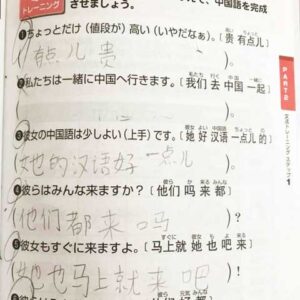 トレーニング させましょう。 て、中国語を完成
①ちょっとだけ(値段が)高い(いやだなぁ)。[贵 有点儿]
(有点儿 贵
②私たちは一緒に中国へ行きます。[我们 去 中国 一起]
(
)。
③彼女の中国語は少しよい(上手)です。[她 好 汉语 一点儿 的]
(她的汉语好一点儿
)。
④彼らはみんな来ますか?[他们 吗 来 都]
(他们都来吗
)?
⑤彼女もすぐに来ますよ。[马上 就 她 也 吧 来]
(她也马上就来吧
)!
PART2
文法トレーニング ステップ1